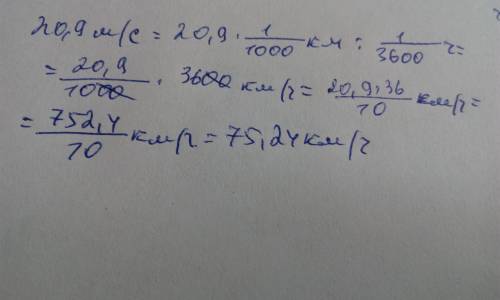 20,9 м/с = 20,9 · 1/1000 км : 1/3600 ч =
= 20,9/1000 · 3600 км/ч = 20,9·36/10 км/ч =
= 752,4/10 км/ч = 75,24 км/ч